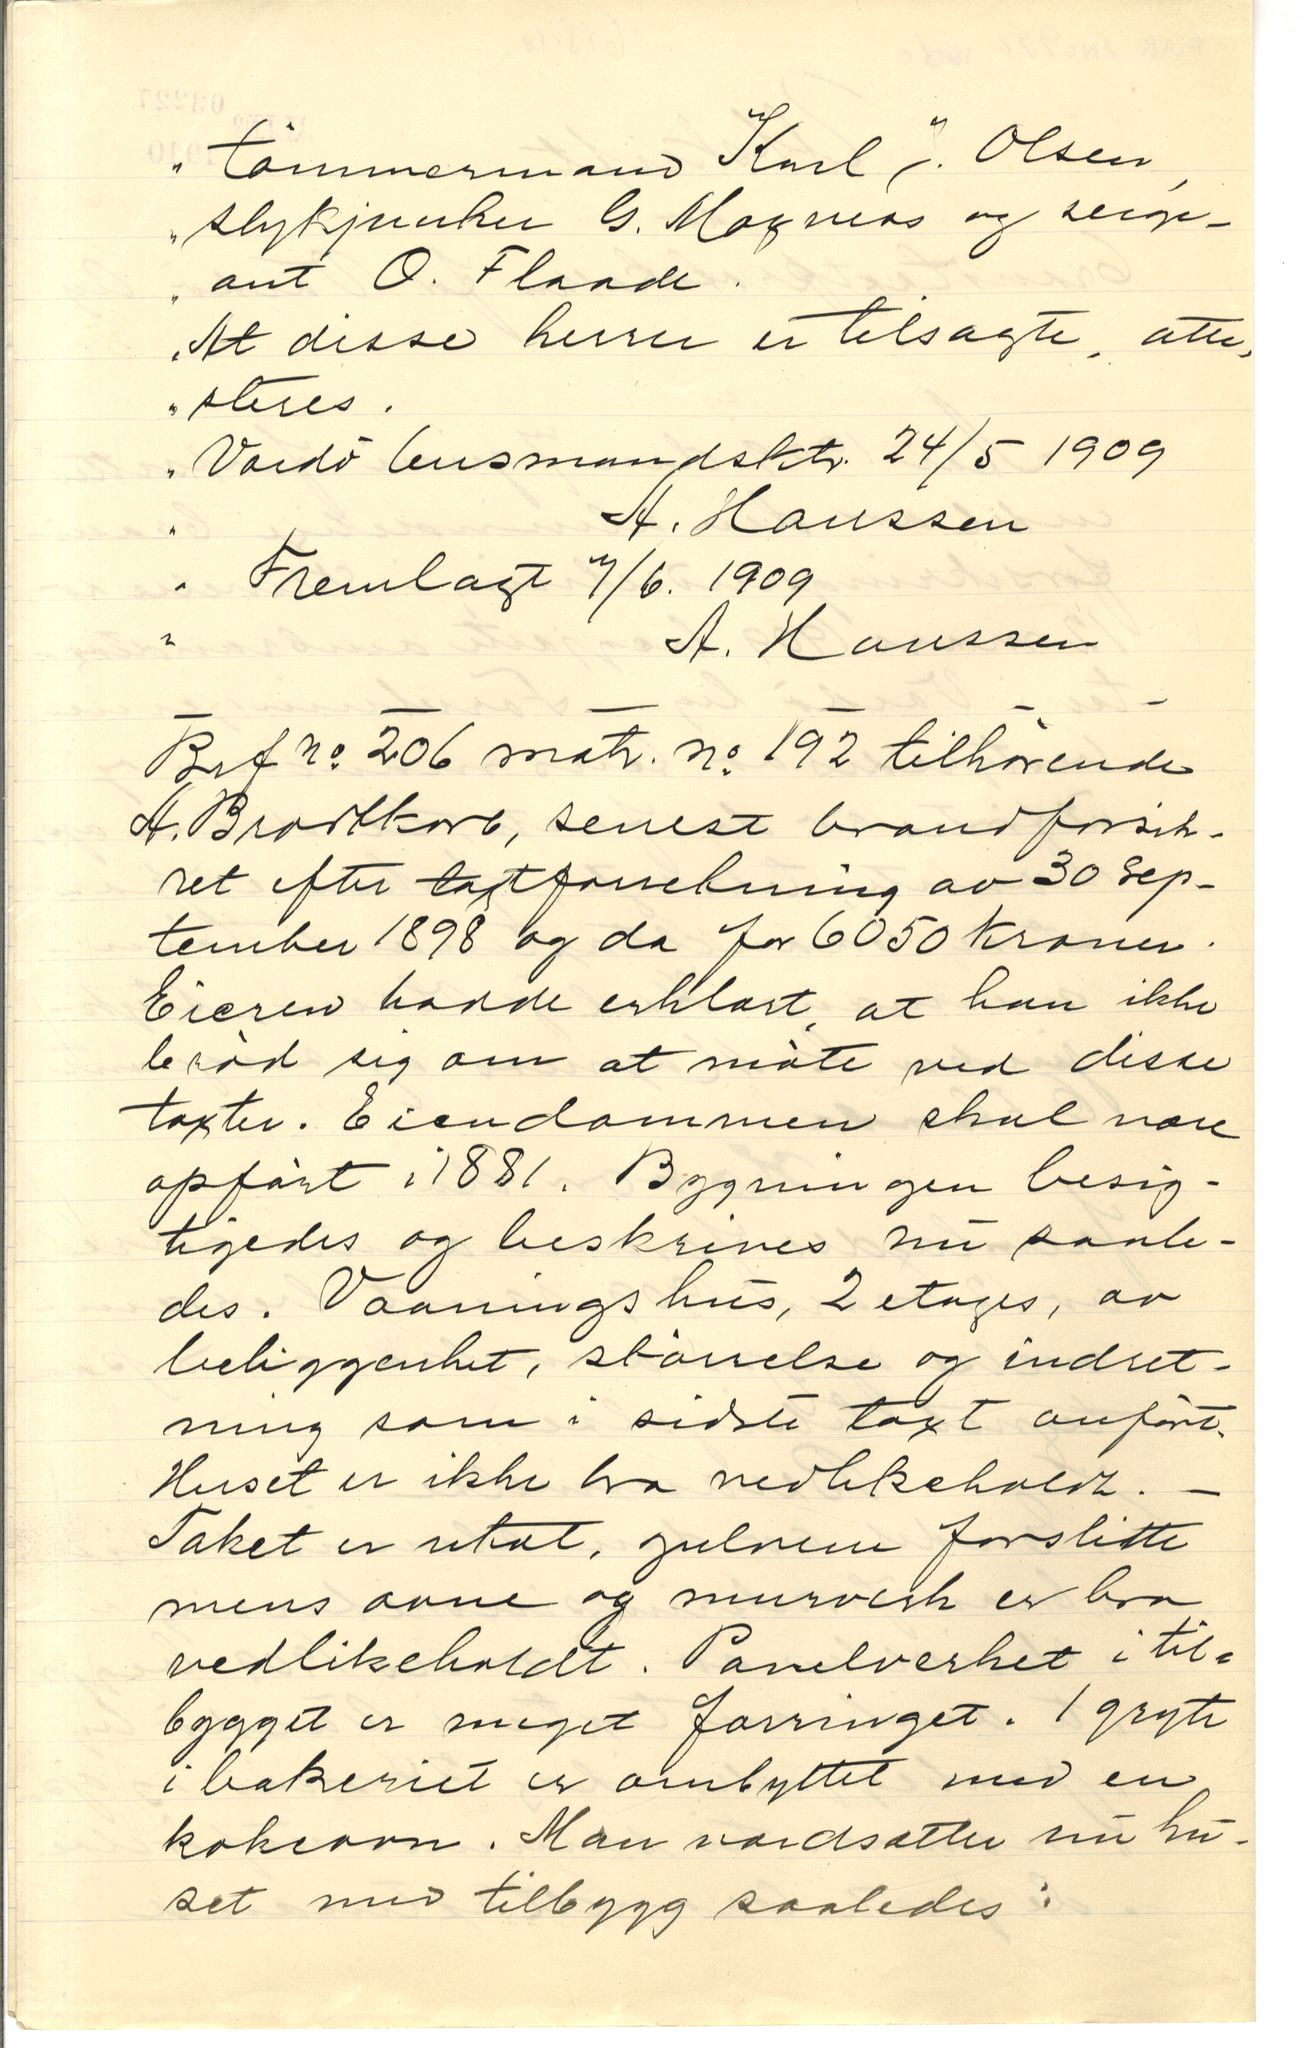 " tömmermand Karl J. Olsen,
" stykjunker G. Magnus og serge-
" ant O. Flaade.
" At disse herrer er tilsagte, atte-
" steres.
" Vardö lensmandsktr. 24/5 1909
" A. Hanssen
" Fremlagt 7/6. 1909
" A. Hanssen
Brf no. 206 matr. no. 192 tilhörende
A. Brodtkorb, senest brandforsik-
ret efter taxtforretning av 30 sep-
tember 1898 og da for 6050 kroner.
Eieren hadde erklært, at han ikke
bröd sig om at möte ved disse
taxter. Eiendommen skal være
opfört i 1881. Bygningen besig-
tigedes og beskrives nu saale-
des. Vaaningshus, 2 etages, av
beliggenhet, störrelse og indret-
ning som i sidste taxt anfört.
Huset er ikke bra vedlikeholdt. —
Taket er utæt, gulvene forslitte
mens ovne og murverk er bra
vedlikeholdt. Panelverket i til-
bygget er meget forringet. 1 gryte
i bakeriet er ombyttet med en
kokeovn. Man værdsætter nu hu-
set med tilbygg saaledes: